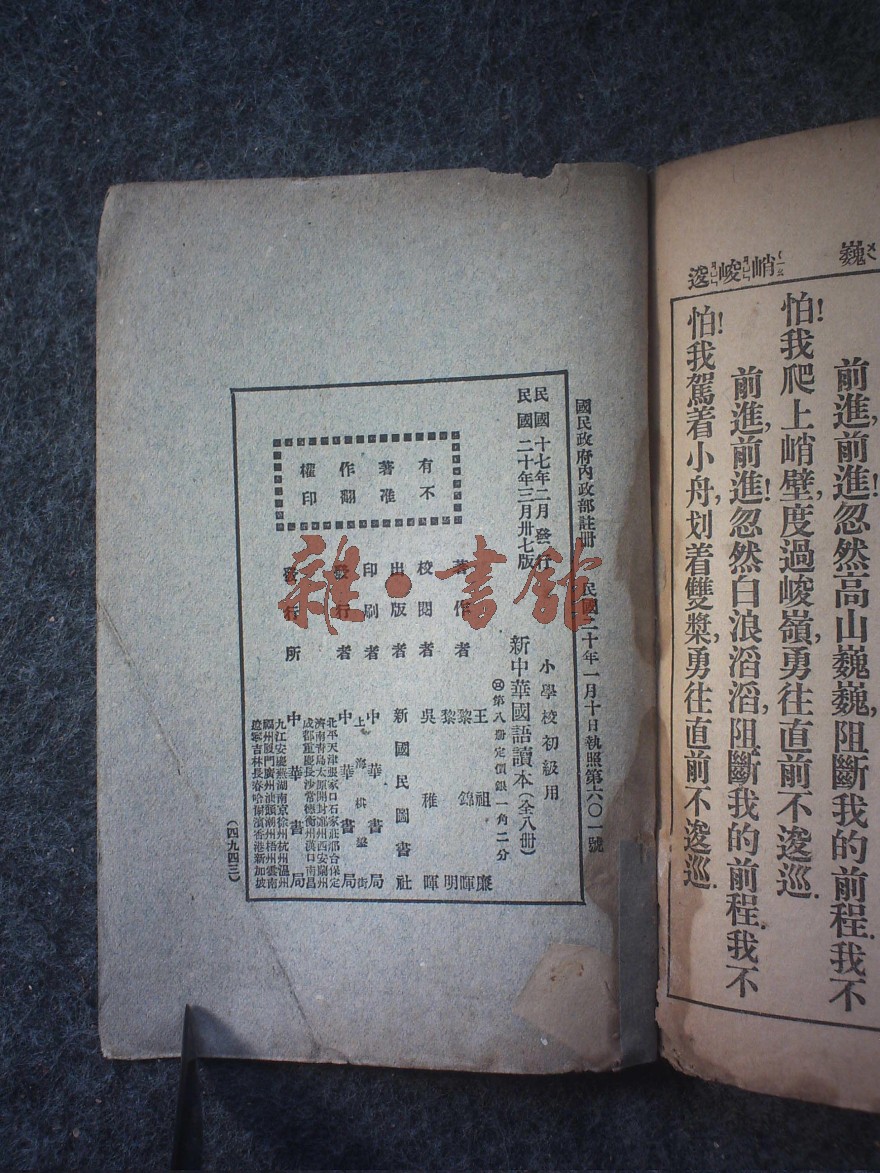 巍
峭峻逡
前進,前進!忽然高山巍巍,阻斷我的前程.我不
怕!我爬上峭壁,度過峻嶺,勇往直前不逡巡.
前進,前進!忽然白浪滔滔,阻斷我的前程.我不
怕!我駕着小舟,划着雙槳,勇往直前不逡巡.
國民政府內政部註冊 民國二十年一月十日執照第六〇一號
民國十七年二月發行
民國二十年三月卅七版
小學校初級用
新中華國語讀本(全八冊)
第八冊定價銀一角二分
有著作權
不准翻印
著作者 王祖廉 黎錦暉 黎明
校閱者 吳稚暉
出版者 新國民圖書社
印刷者 中華書局
上海棋盤街
發行者 中華書局
發行所 中華書局
北平天津張家口石家莊邢台保定
濟南青島太原開封鄭州西安蘭州
成都重慶長沙常德衡州漢口南昌
九江安慶蕪湖南京徐州杭州溫州
福州廈門廣州汕頭潮州梧州雲南
遼寧吉林長春哈爾濱香港新加坡
(四九四三)
雜·書館